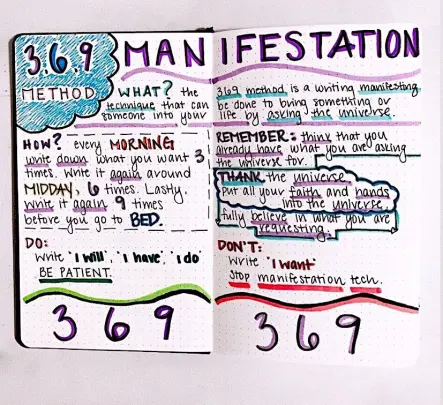 3.6.9 METHOD
MANIFESTATION
WHAT? the 369 method is a writing manifesting
technique that can be done to bring something or
someone into your life by asking the universe.
HOW? every MORNING
write down what you want 3
times. Write it again around
MIDDAY, 6 times. Lastly,
write it again 9 times
before you go to BED.
REMEMBER: think that you
already have what you are asking
the universe for.
THANK the universe
put all your faith and hands
into the universe,
fully believe in what you are
requesting.
DO:
Write "I will", "I have", "I do"
BE PATIENT.
DON'T:
Write "I want"
Stop manifestation tech.
3 6 9
3 6 9